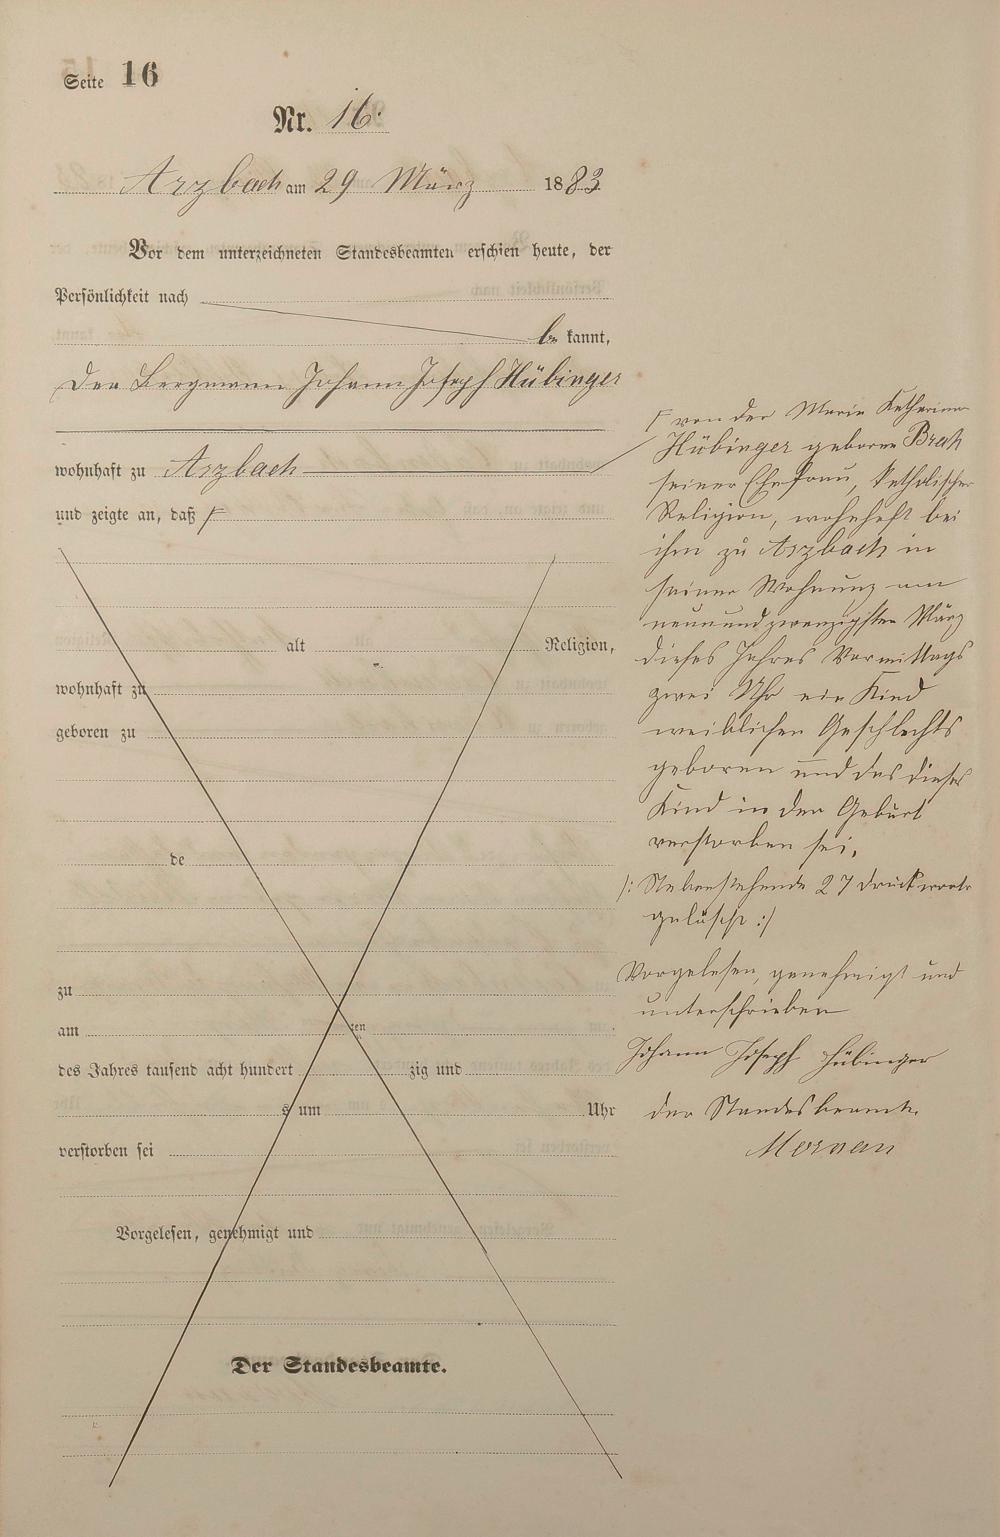 Seite 16
Nr. 16.
Arzbach am 29 März 1883.
Vor dem unterzeichneten Standesbeamten erschien heute, der
Persönlichkeit nach
be kannt,
Der Bergmann Johann Joseph Hübinger
wohnhaft zu Arzbach
und zeigte an, daß F
alt Religion,
wohnhaft zu
geboren zu
de
zu
am ten
des Jahres tausend acht hundert zig und
s um Uhr
verstorben sei
Vorgelesen, genehmigt und
Der Standesbeamte.
F von der Maria Katharina
Hübinger geborene Brah
seiner Ehefrau, katholischer
Religion, wohnhaft bei
ihm zu Arzbach in
seiner Wohnung am
neunundzwanzigsten März
dieses Jahres Vormittags
zwei Uhr ein Kind
weiblichen Geschlechts
geboren und das dieses
Kind in der Geburt
verstorben sei.
/: Nebenstehende 27 Druckworte
gelöscht :/
Vorgelesen, genehmigt und
unterschrieben
Johann Joseph Hübinger
der Standesbeamte.